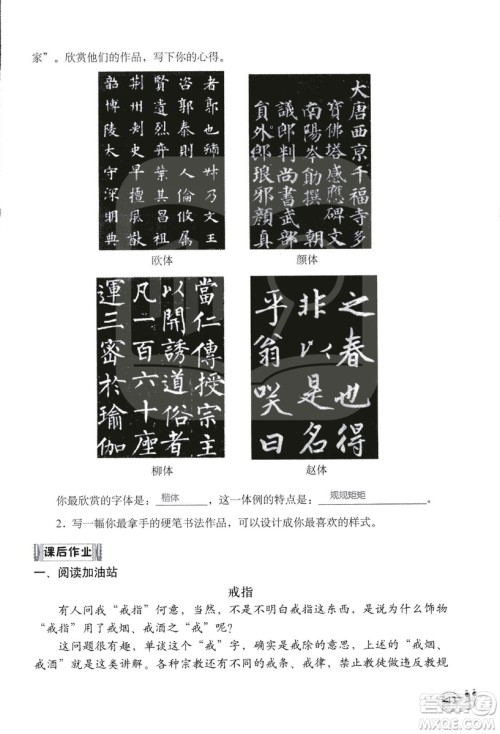 家”。欣赏他们的作品，写下你的心得。
者鄣也殤也
咨郭秦則虢
賢遺烈弈葉其昌
荆州刾史早擅風
韶博陵太守深明典
欧体
大唐西京千福寺多
寳佛塔感應碑文
南陽岑勛撰 朝
議郎判尚書武部
員外郎琅邪顏真
颜体
當仁傳授宗主
以開誘道俗者
凡一百六十座
運三密於瑜伽
柳体
之春也得
非以是名
乎翁咲曰
赵体
你最欣赏的字体是：楷体，这一体例的特点是：规规矩矩。
2．写一幅你最拿手的硬笔书法作品，可以设计成你最喜欢的样式。
课后作业
一、阅读加油站
戒指
有人问我“戒指”何意，当然，不是不明白戒指这东西，是说为什么饰物
“戒指”用了戒烟、戒酒之“戒”呢？
这问题很有趣。当然，单谈这个“戒”字，确实是戒除的意思，“戒烟、
戒酒”就是这类讲解。各种宗教还有不同的戒条、戒律，禁止教徒做违反教规